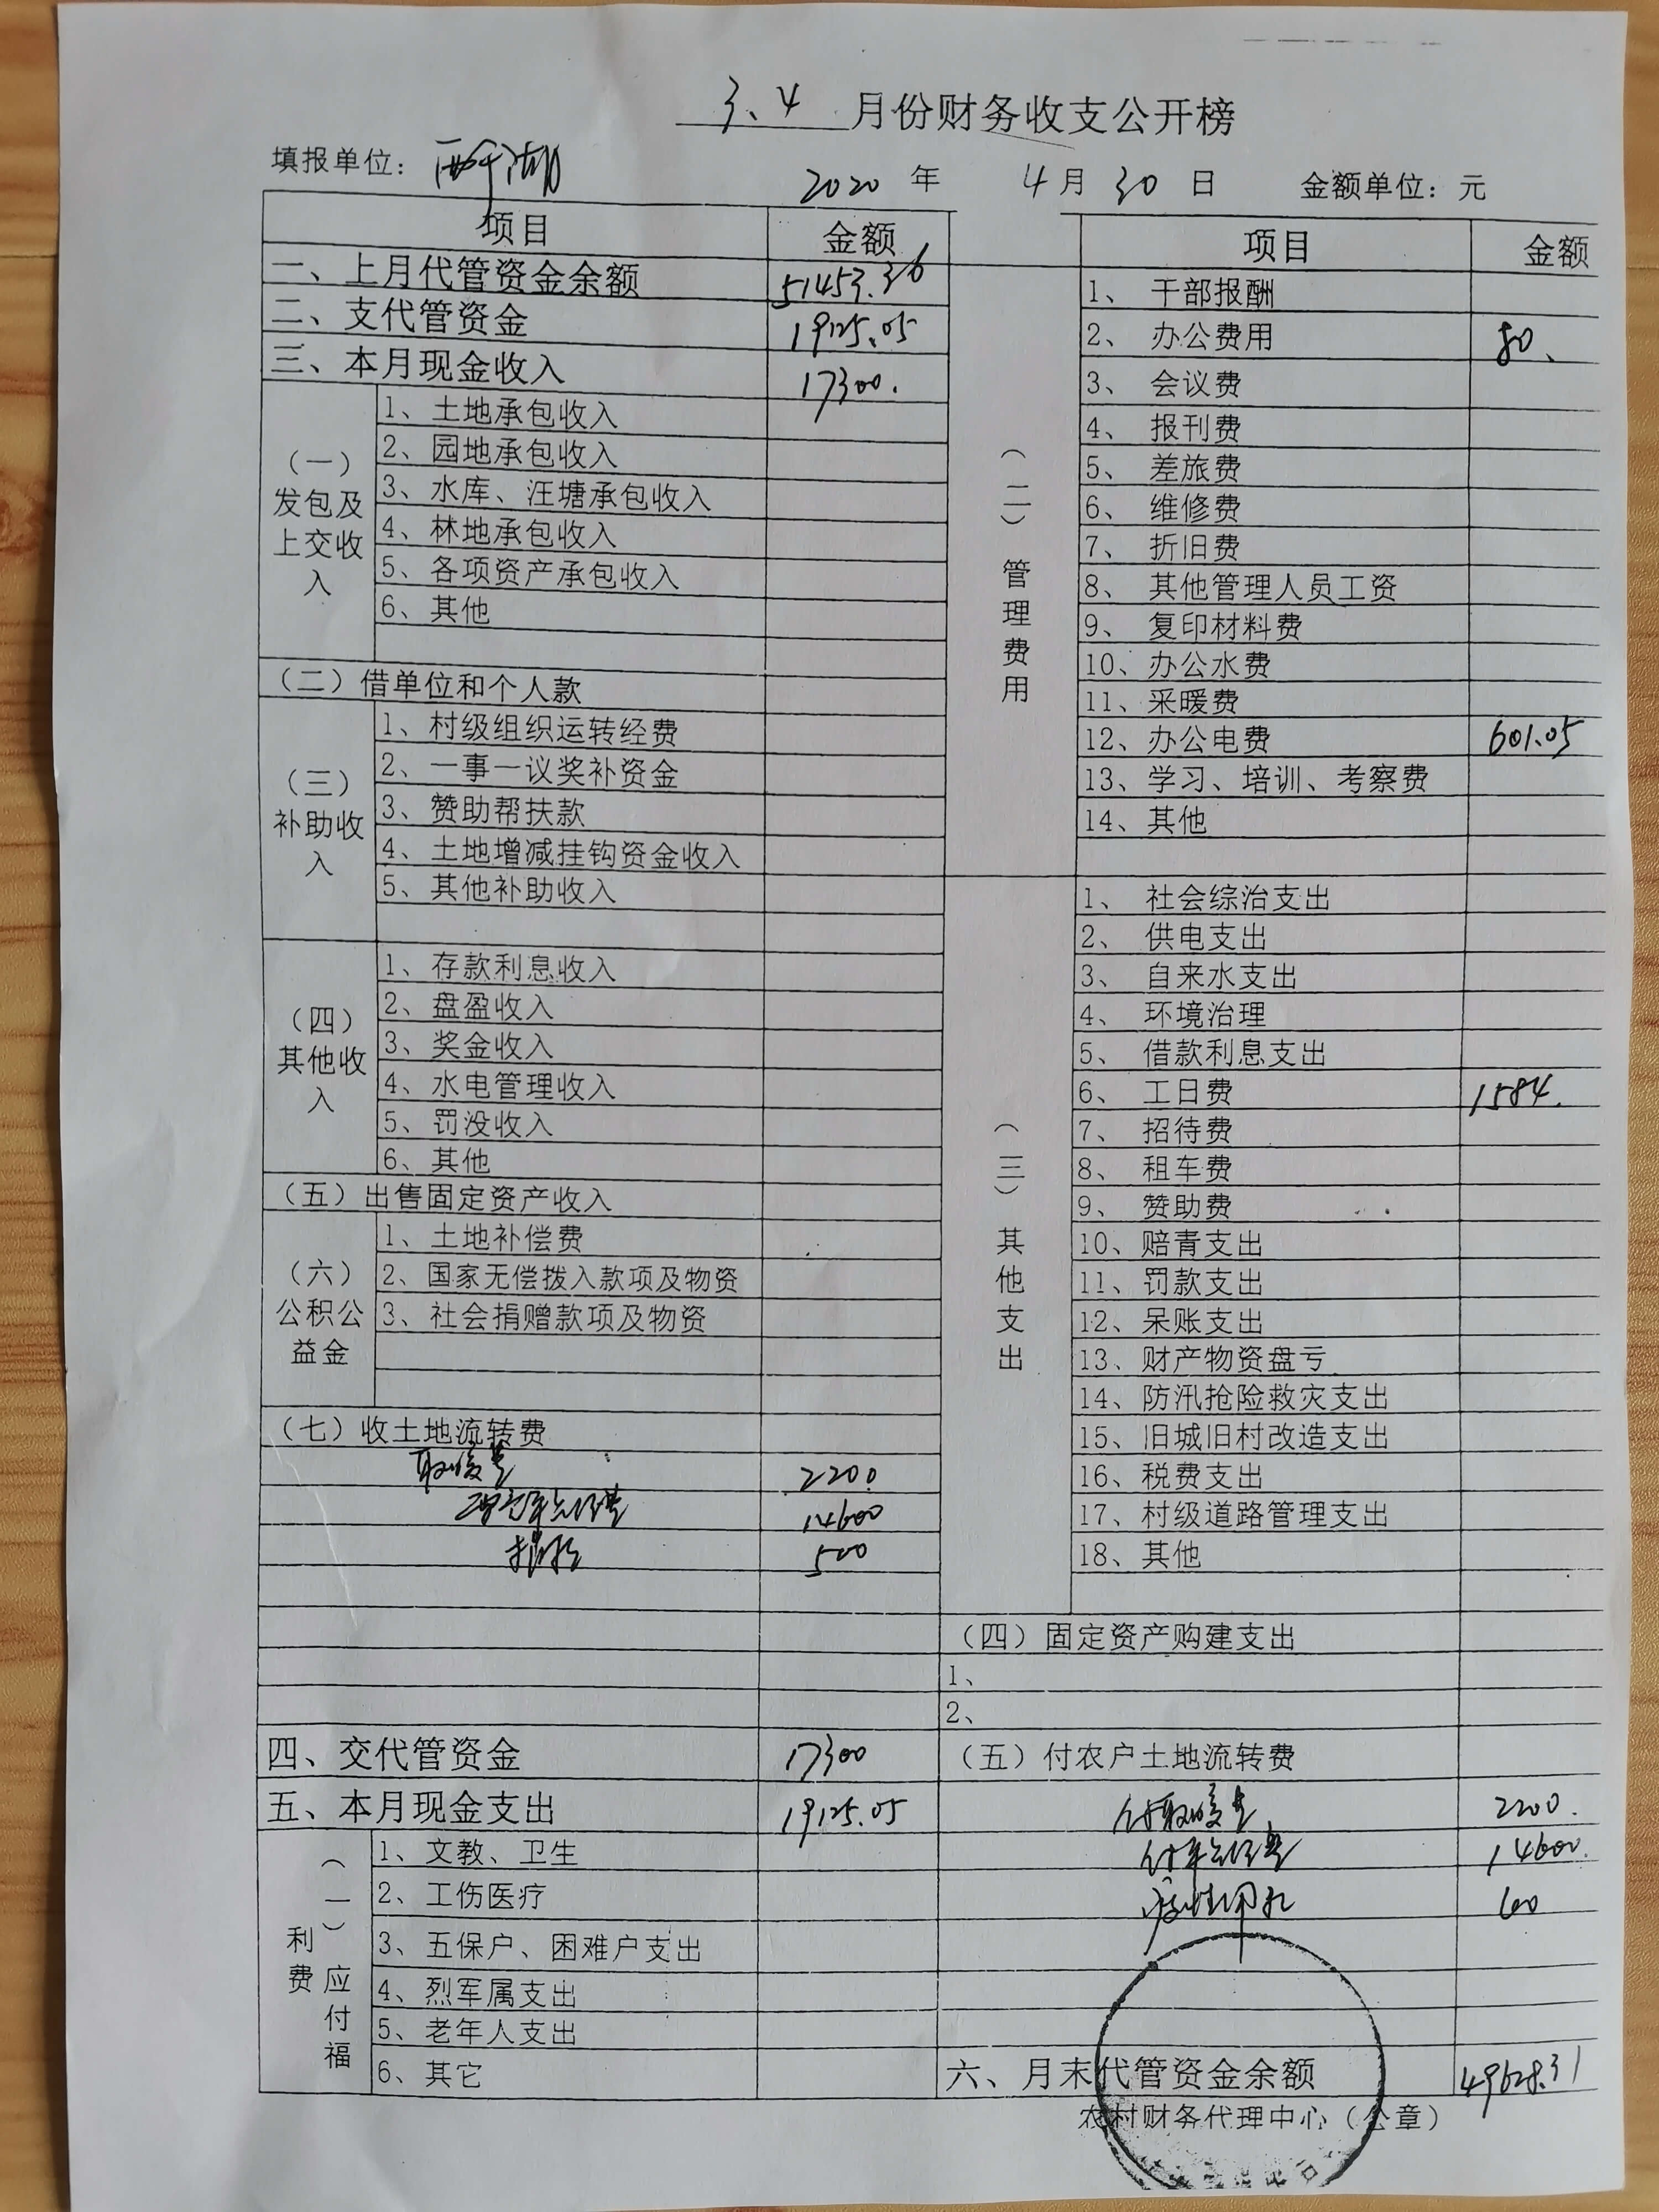 3.4 月份财务收支公开榜
填报单位:
2020 年 4 月 30 日 金额单位:元
项目 金额
一、上月代管资金余额 51453.36
二、支代管资金 19125.05
三、本月现金收入 17300.
(一)发包及上交收入
1、土地承包收入
2、园地承包收入
3、水库、汪塘承包收入
4、林地承包收入
5、各项资产承包收入
6、其他
(二)借单位和个人款
(三)补助收入
1、村级组织运转经费
2、一事一议奖补资金
3、赞助帮扶款
4、土地增减挂钩资金收入
5、其他补助收入
(四)其他收入
1、存款利息收入
2、盘盈收入
3、奖金收入
4、水电管理收入
5、罚没收入
6、其他
(五)出售固定资产收入
(六)公积公益金
1、土地补偿费
2、国家无偿拨入款项及物资
3、社会捐赠款项及物资
(七)收土地流转费
取暖费 2200
14600
500
四、交代管资金 17300
五、本月现金支出 19125.05
(一)应付福利费
1、文教、卫生
2、工伤医疗
3、五保户、困难户支出
4、烈军属支出
5、老年人支出
6、其它
项目 金额
(二)管理费用
1、干部报酬
2、办公费用 80.
3、会议费
4、报刊费
5、差旅费
6、维修费
7、折旧费
8、其他管理人员工资
9、复印材料费
10、办公水费
11、采暖费
12、办公电费 601.05
13、学习、培训、考察费
14、其他
(三)其他支出
1、社会综治支出
2、供电支出
3、自来水支出
4、环境治理
5、借款利息支出
6、工日费 1584.
7、招待费
8、租车费
9、赞助费
10、赔青支出
11、罚款支出
12、呆账支出
13、财产物资盘亏
14、防汛抢险救灾支出
15、旧城旧村改造支出
16、税费支出
17、村级道路管理支出
18、其他
(四)固定资产购建支出
1、
2、
(五)付农户土地流转费
付取暖费 2200.
14600.
60
六、月末代管资金余额 49628.31
农村财务代理中心(公章)